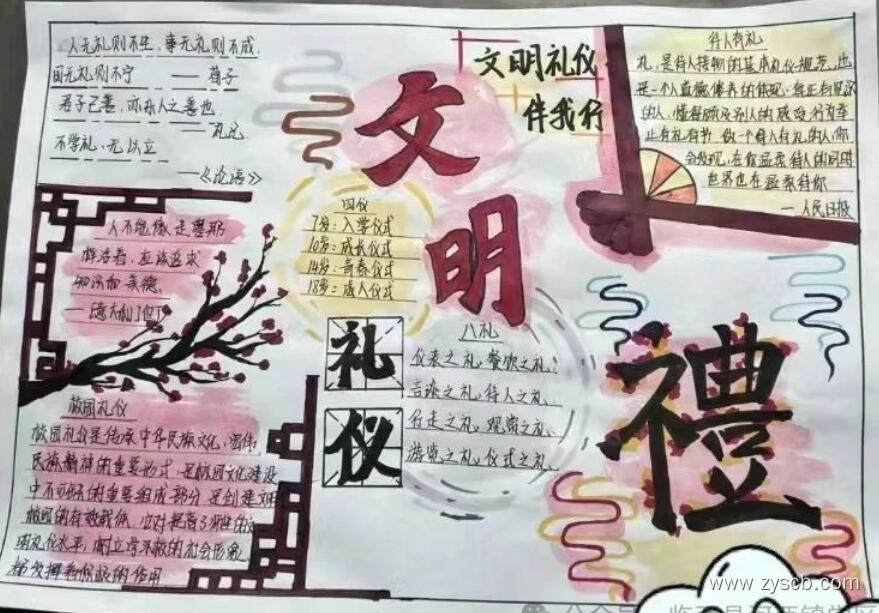 人无礼则不生，事无礼则不成，
国无礼则不宁 —— 荀子
君子己善，亦乐人之善也
—— 礼记
不学礼，无以立
——《论语》
文明
文明礼仪
伴我行
待人有礼
礼，是待人接物的基本礼仪规范，也
是一个人道德修养的体现，真正有见识
的人，懂得顾及别人的感受，行有
止有礼有节，做一个待人有礼的人，你
会发现，在你温柔待人的同时
世界也在温柔待你
—人民日报
四仪
7岁：入学仪式
10岁：成长仪式
14岁：青春仪式
18岁：成人仪式
人不能像走兽那
样活着，应该追求
知识和美德，
—意大利（但丁
礼仪
八礼
仪表之礼，餐饮之礼；
言谈之礼，待人之礼、
行走之礼，观赏之礼、
游览之礼，仪式之礼、
禮
校园礼仪
校园礼仪是传承中华民族文化，弘伟
民族精神的重要形式，是校园文化建设
中不可缺的重要组成部分，是创建文明
校园的有效载体，应对提高了师生的
园礼仪水平，树立学不校的社会形象
将发挥积极的作用
www.zyscb.com
公众号